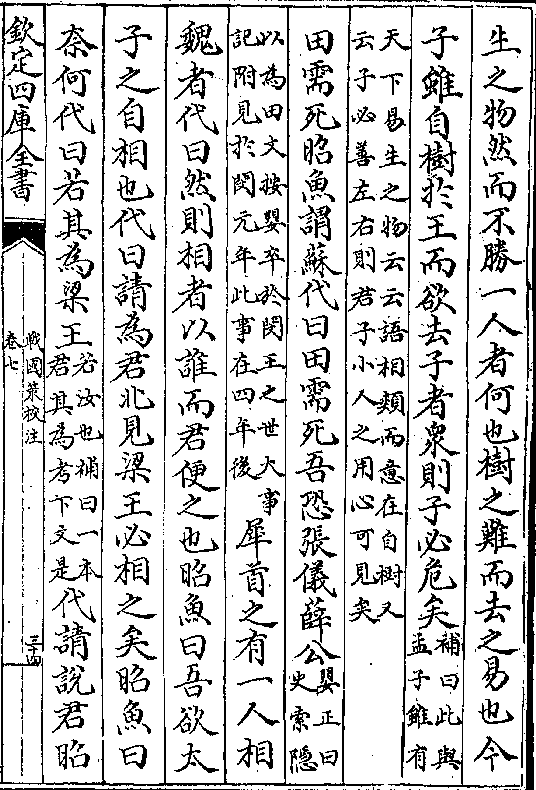 生之物然而不勝一人者何也樹之難而去之易也今
子雖自樹於王而欲去子者衆則子必危矣補曰此與孟子雖有
天下易生之物云云語相類而意在自樹又
云子必善左右則君子小人之用心可見矣
田需死昭魚謂蘇代曰田需死吾恐張儀薛公嬰正曰史索隱
以為田文按嬰卒於閔王之世大事
記附見於閔元年此事在四年後犀首之有一人相
魏者代曰然則相者以誰而君便之也昭魚曰吾欲太
子之自相也代曰請為君北見梁王必相之矣昭魚曰
奈何代曰若其為梁王若汝也補曰一本君其為考下文是代請說君昭
欽定四庫全書
戰國策校注
卷七
三十四